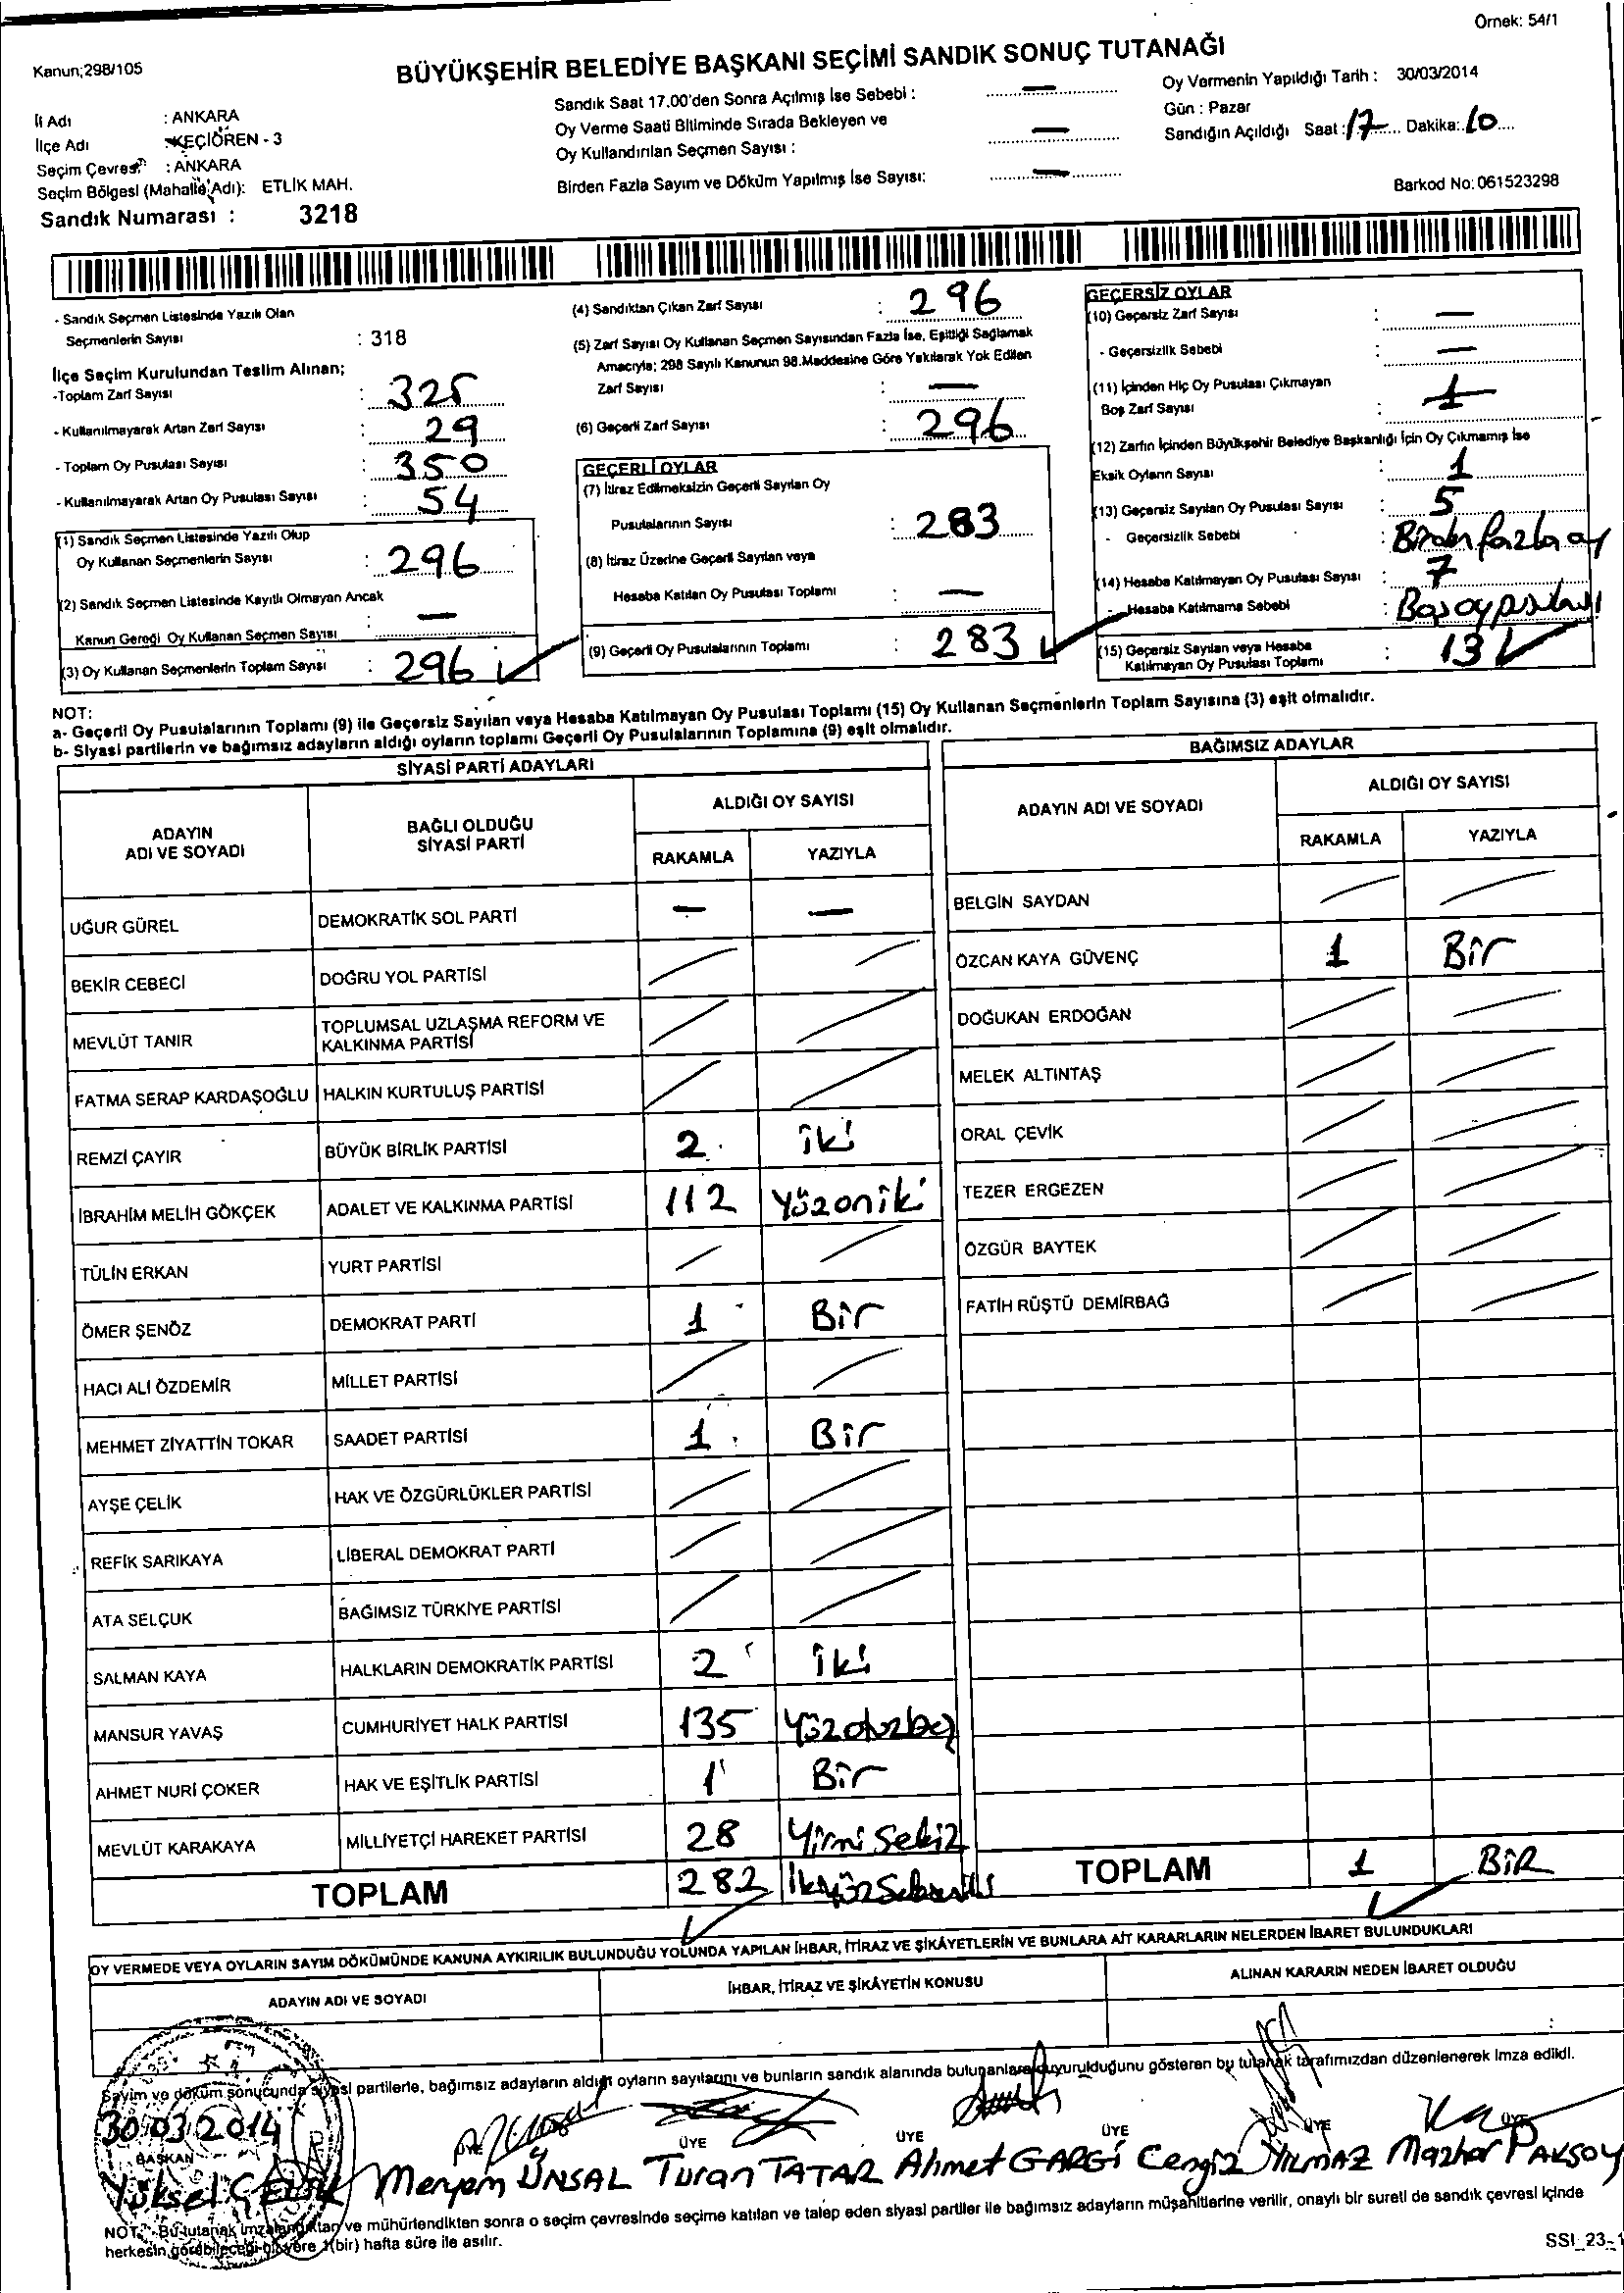 Örnek: 54/1
Kanun;298/105
BÜYÜKŞEHİR BELEDİYE BAŞKANI SEÇİMİ SANDIK SONUÇ TUTANAĞI
İl Adı : ANKARA
İlçe Adı KEÇİÖREN - 3
Seçim Çevresi : ANKARA
Seçim Bölgesi (Mahalle Adı): ETLİK MAH.
Sandık Numarası : 3218
Sandık Saat 17.00'den Sonra Açılmış İse Sebebi : —
Oy Verme Saati Bitiminde Sırada Bekleyen ve
Oy Kullandırılan Seçmen Sayısı : —
Birden Fazla Sayım ve Döküm Yapılmış İse Sayısı: —
Oy Vermenin Yapıldığı Tarih : 30/03/2014
Gün : Pazar
Sandığın Açıldığı Saat : 17 Dakika: 10
Barkod No: 061523298
- Sandık Seçmen Listesinde Yazılı Olan
Seçmenlerin Sayısı : 318
İlçe Seçim Kurulundan Teslim Alınan;
-Toplam Zarf Sayısı : 325
- Kullanılmayarak Artan Zarf Sayısı : 29
- Toplam Oy Pusulası Sayısı : 350
- Kullanılmayarak Artan Oy Pusulası Sayısı : 54
(1) Sandık Seçmen Listesinde Yazılı Olup
Oy Kullanan Seçmenlerin Sayısı : 296
(2) Sandık Seçmen Listesinde Kayıtlı Olmayan Ancak
Kanun Gereği Oy Kullanan Seçmen Sayısı : —
(3) Oy Kullanan Seçmenlerin Toplam Sayısı : 296
(4) Sandıktan Çıkan Zarf Sayısı : 296
(5) Zarf Sayısı Oy Kullanan Seçmen Sayısından Fazla İse, Eşitliği Sağlamak
Amacıyla; 298 Sayılı Kanunun 98.Maddesine Göre Yakılarak Yok Edilen
Zarf Sayısı : —
(6) Geçerli Zarf Sayısı : 296
GEÇERLİ OYLAR
(7) İtiraz Edilmeksizin Geçerli Sayılan Oy
Pusulalarının Sayısı : 283
(8) İtiraz Üzerine Geçerli Sayılan veya
Hesaba Katılan Oy Pusulası Toplamı : —
(9) Geçerli Oy Pusulalarının Toplamı : 283
GEÇERSİZ OYLAR
(10) Geçersiz Zarf Sayısı : —
- Geçersizlik Sebebi : —
(11) İçinden Hiç Oy Pusulası Çıkmayan
Boş Zarf Sayısı : 1
(12) Zarfın İçinden Büyükşehir Belediye Başkanlığı İçin Oy Çıkmamış İse
Eksik Oyların Sayısı : 1
(13) Geçersiz Sayılan Oy Pusulası Sayısı : 5
- Geçersizlik Sebebi : Birden fazla oy
(14) Hesaba Katılmayan Oy Pusulası Sayısı : 7
- Hesaba Katılmama Sebebi : Boş oy pusulası
(15) Geçersiz Sayılan veya Hesaba
Katılmayan Oy Pusulası Toplamı : 13
NOT:
a- Geçerli Oy Pusulalarının Toplamı (9) ile Geçersiz Sayılan veya Hesaba Katılmayan Oy Pusulası Toplamı (15) Oy Kullanan Seçmenlerin Toplam Sayısına (3) eşit olmalıdır.
b- Siyasi partilerin ve bağımsız adayların aldığı oyların toplamı Geçerli Oy Pusulalarının Toplamına (9) eşit olmalıdır.
SİYASİ PARTİ ADAYLARI
ADAYIN ADI VE SOYADI BAĞLI OLDUĞU SİYASİ PARTİ ALDIĞI OY SAYISI
RAKAMLA YAZIYLA
UĞUR GÜREL DEMOKRATİK SOL PARTİ — —
BEKİR CEBECİ DOĞRU YOL PARTİSİ
MEVLÜT TANIR TOPLUMSAL UZLAŞMA REFORM VE KALKINMA PARTİSİ
FATMA SERAP KARDAŞOĞLU HALKIN KURTULUŞ PARTİSİ
REMZİ ÇAYIR BÜYÜK BİRLİK PARTİSİ 2 iki
İBRAHİM MELİH GÖKÇEK ADALET VE KALKINMA PARTİSİ 112 Yüzoniki
TÜLİN ERKAN YURT PARTİSİ
ÖMER ŞENÖZ DEMOKRAT PARTİ 1 Bir
HACI ALİ ÖZDEMİR MİLLET PARTİSİ
MEHMET ZİYATTİN TOKAR SAADET PARTİSİ 1 Bir
AYŞE ÇELİK HAK VE ÖZGÜRLÜKLER PARTİSİ
REFİK SARIKAYA LİBERAL DEMOKRAT PARTİ
ATA SELÇUK BAĞIMSIZ TÜRKİYE PARTİSİ
SALMAN KAYA HALKLARIN DEMOKRATİK PARTİSİ 2 iki
MANSUR YAVAŞ CUMHURİYET HALK PARTİSİ 135 Yüzotuzbeş
AHMET NURİ ÇOKER HAK VE EŞİTLİK PARTİSİ 1 Bir
MEVLÜT KARAKAYA MİLLİYETÇİ HAREKET PARTİSİ 28 Yirmi Sekiz
TOPLAM 282
BAĞIMSIZ ADAYLAR
ADAYIN ADI VE SOYADI ALDIĞI OY SAYISI
RAKAMLA YAZIYLA
BELGİN SAYDAN
ÖZCAN KAYA GÜVENÇ 1 Bir
DOĞUKAN ERDOĞAN
MELEK ALTINTAŞ
ORAL ÇEVİK
TEZER ERGEZEN
ÖZGÜR BAYTEK
FATİH RÜŞTÜ DEMİRBAĞ
TOPLAM 1 BİR
OY VERMEDE VEYA OYLARIN SAYIM DÖKÜMÜNDE KANUNA AYKIRILIK BULUNDUĞU YOLUNDA YAPILAN İHBAR, İTİRAZ VE ŞİKÂYETLERİN VE BUNLARA AİT KARARLARIN NELERDEN İBARET BULUNDUKLARI
ADAYIN ADI VE SOYADI İHBAR, İTİRAZ VE ŞİKÂYETİN KONUSU ALINAN KARARIN NEDEN İBARET OLDUĞU
Sayım ve döküm sonucunda siyasi partilerle, bağımsız adayların aldığı oyların sayılarını ve bunların sandık alanında bulunanlara duyurulduğunu gösteren bu tutanak tarafımızdan düzenlenerek imza edildi.
30.03.2014
BAŞKAN ÜYE ÜYE ÜYE ÜYE ÜYE
Yüksel ÇELİK Meryem ÜNSAL Turan TATAR Ahmet GARGİ Cengiz YILMAZ Mazhar PAKSOY
NOT: Bu tutanak imzalandıktan ve mühürlendikten sonra o seçim çevresinde seçime katılan ve talep eden siyasi partiler ile bağımsız adayların müşahitlerine verilir, onaylı bir sureti de sandık çevresi içinde
herkesin görebileceği bir yere 1(bir) hafta süre ile asılır.
SSI_23-1